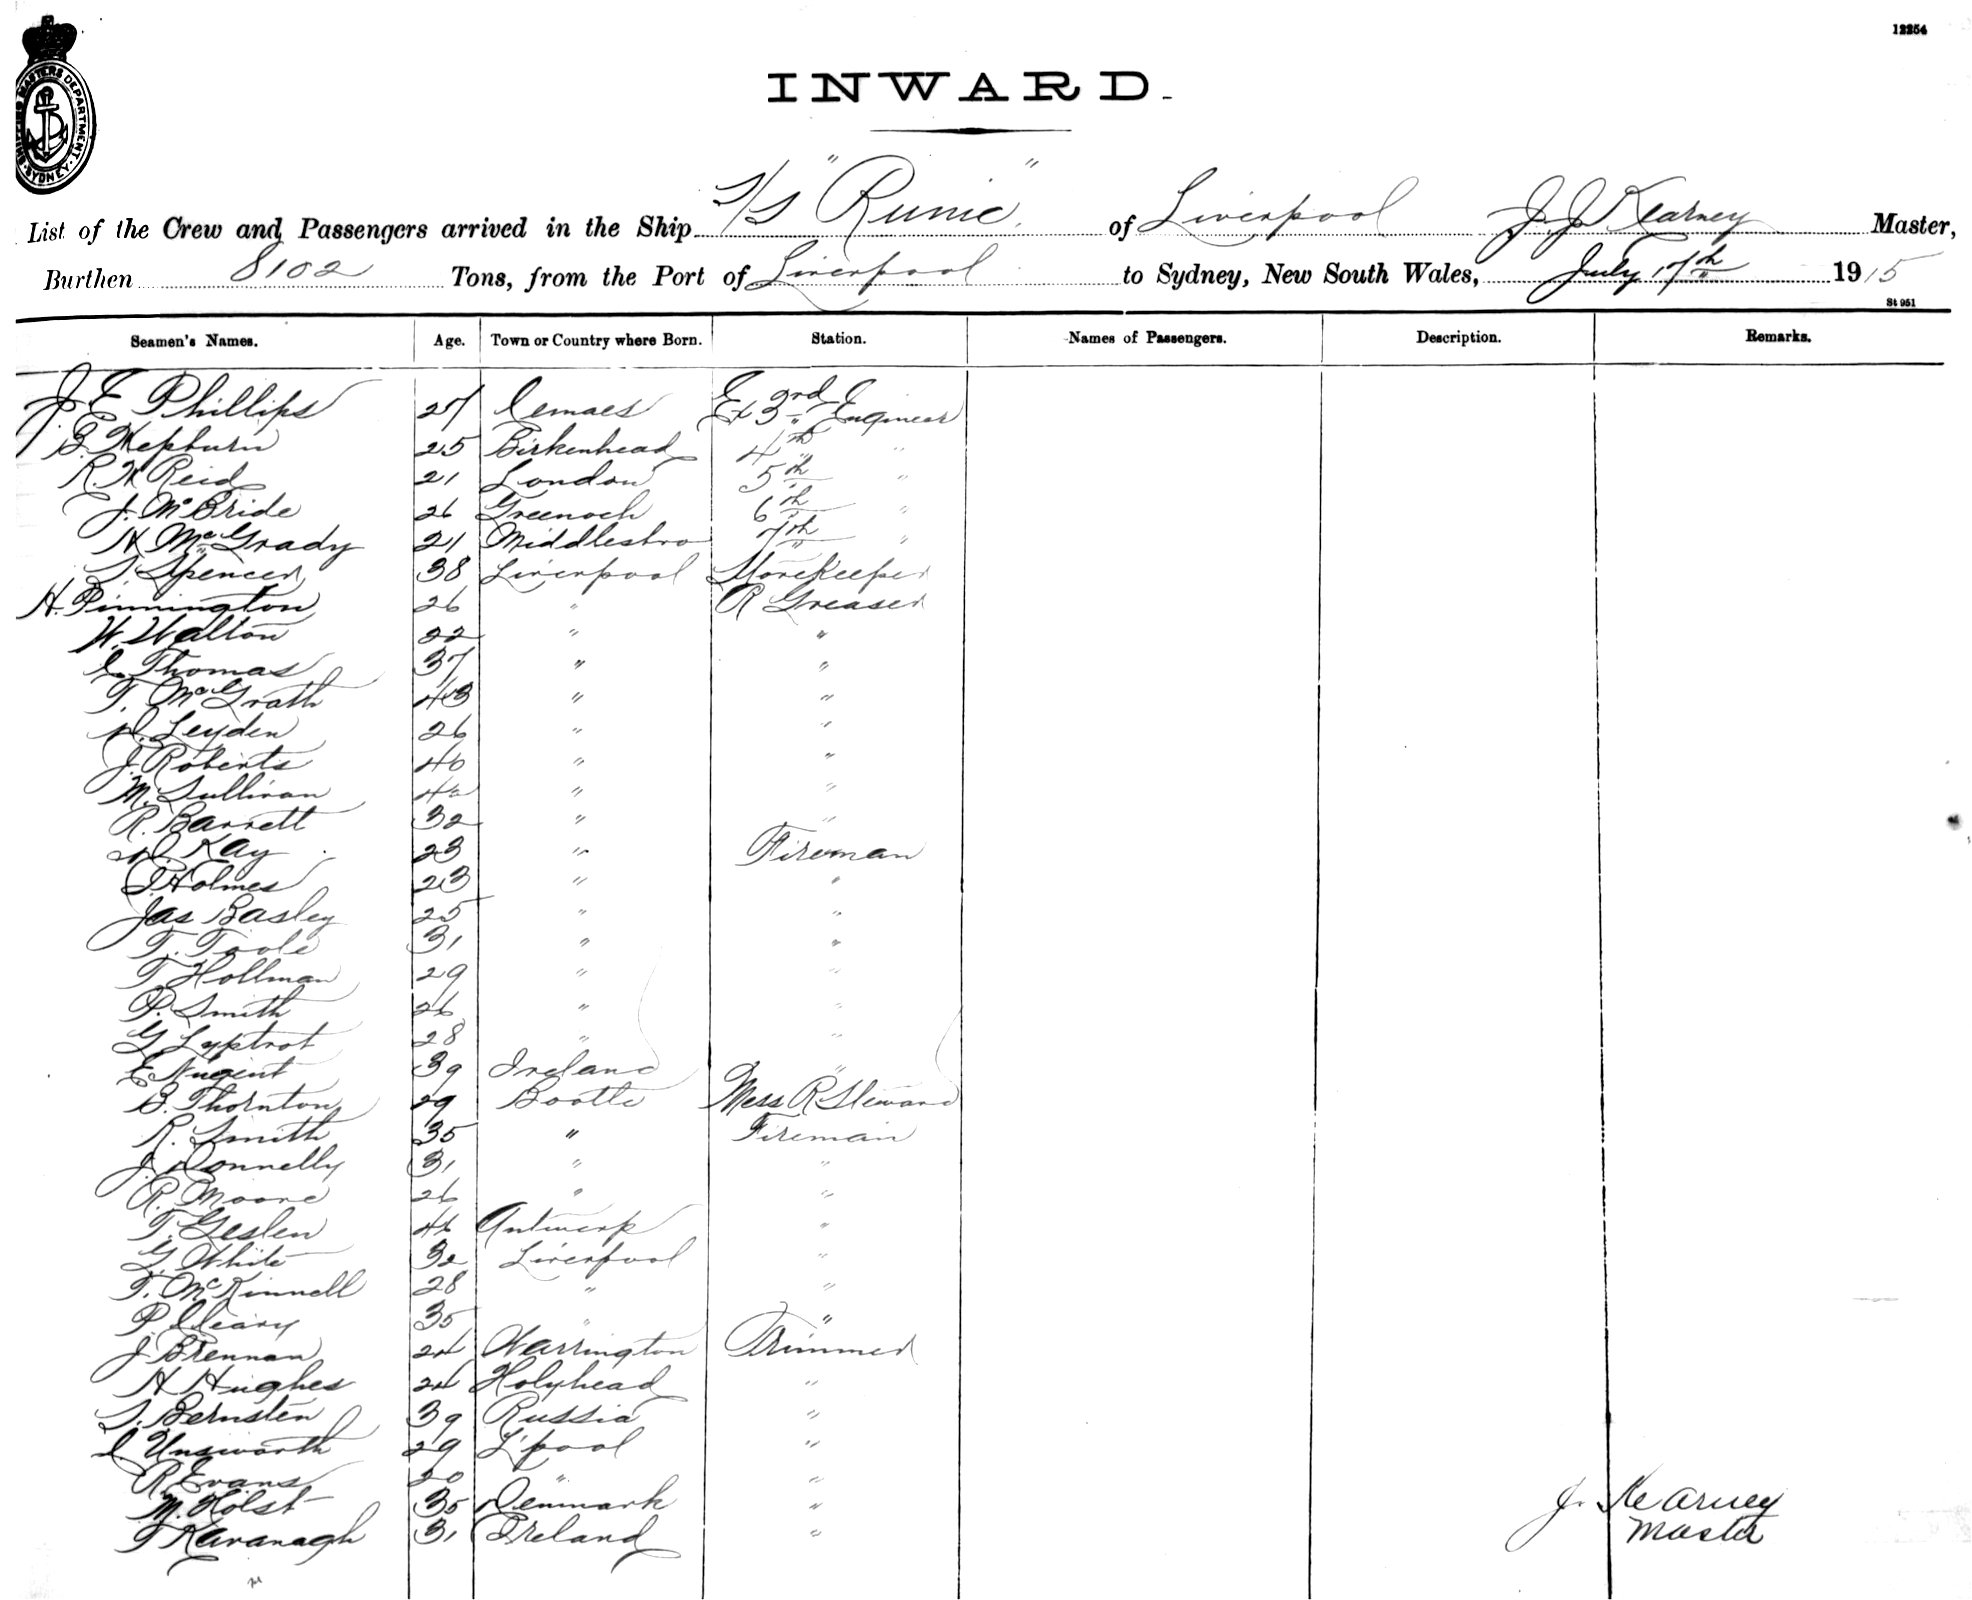 12254
SHIPPING MASTERS DEPARTMENT. SYDNEY.
INWARD.
List of the Crew and Passengers arrived in the Ship S/S "Runic" of Liverpool J. J. Kearney Master,
Burthen 8102 Tons, from the Port of Liverpool to Sydney, New South Wales, July 17th 1915
St 951
Seamen's Names. Age. Town or Country where Born. Station. Names of Passengers. Description. Remarks.
J. E. Phillips 27 Cemaes Ex 3rd Engineer
J. B. Hepburn 25 Birkenhead 4th "
R. W. Reid 21 London 5th "
J. McBride 26 Greenoch 6th "
H McGrady 21 Middlesbro 7th "
Spencer 38 Liverpool Storekeeper
H. Pinnington 26 " R Greaser
W. Walton 22 " "
Thomas 37 " "
T. McGrath 43 " "
D. Leyden 26 " "
J. Roberts 40 " "
M. Sullivan " "
R. Barrett 32 " "
D. Kay 23 " Fireman
Holmes 23 " "
Jas Basley 25 " "
T. Toole 31 " "
T Hollman 29 " "
P. Smith 26 " "
G Lyptrot 28 " "
E Nugent 39 Ireland "
B. Thornton 29 Bootle Mess R Steward
R. Smith 35 " Fireman
J. Donnelly 31 " "
R. Moore 26 " "
T. Geslen 46 Antwerp "
G. White 32 Liverpool "
T. McKinnell 28 " "
P. Cleary 35 " "
J Brennan 24 Warrington Trimmer
H Hughes 24 Holyhead "
S. Bernsten 39 Russia "
Unsworth 29 L'pool "
R Evans 20 " "
M. Holst 35 Denmark "
T Kavanagh 31 Ireland "
J. Kearney
Master